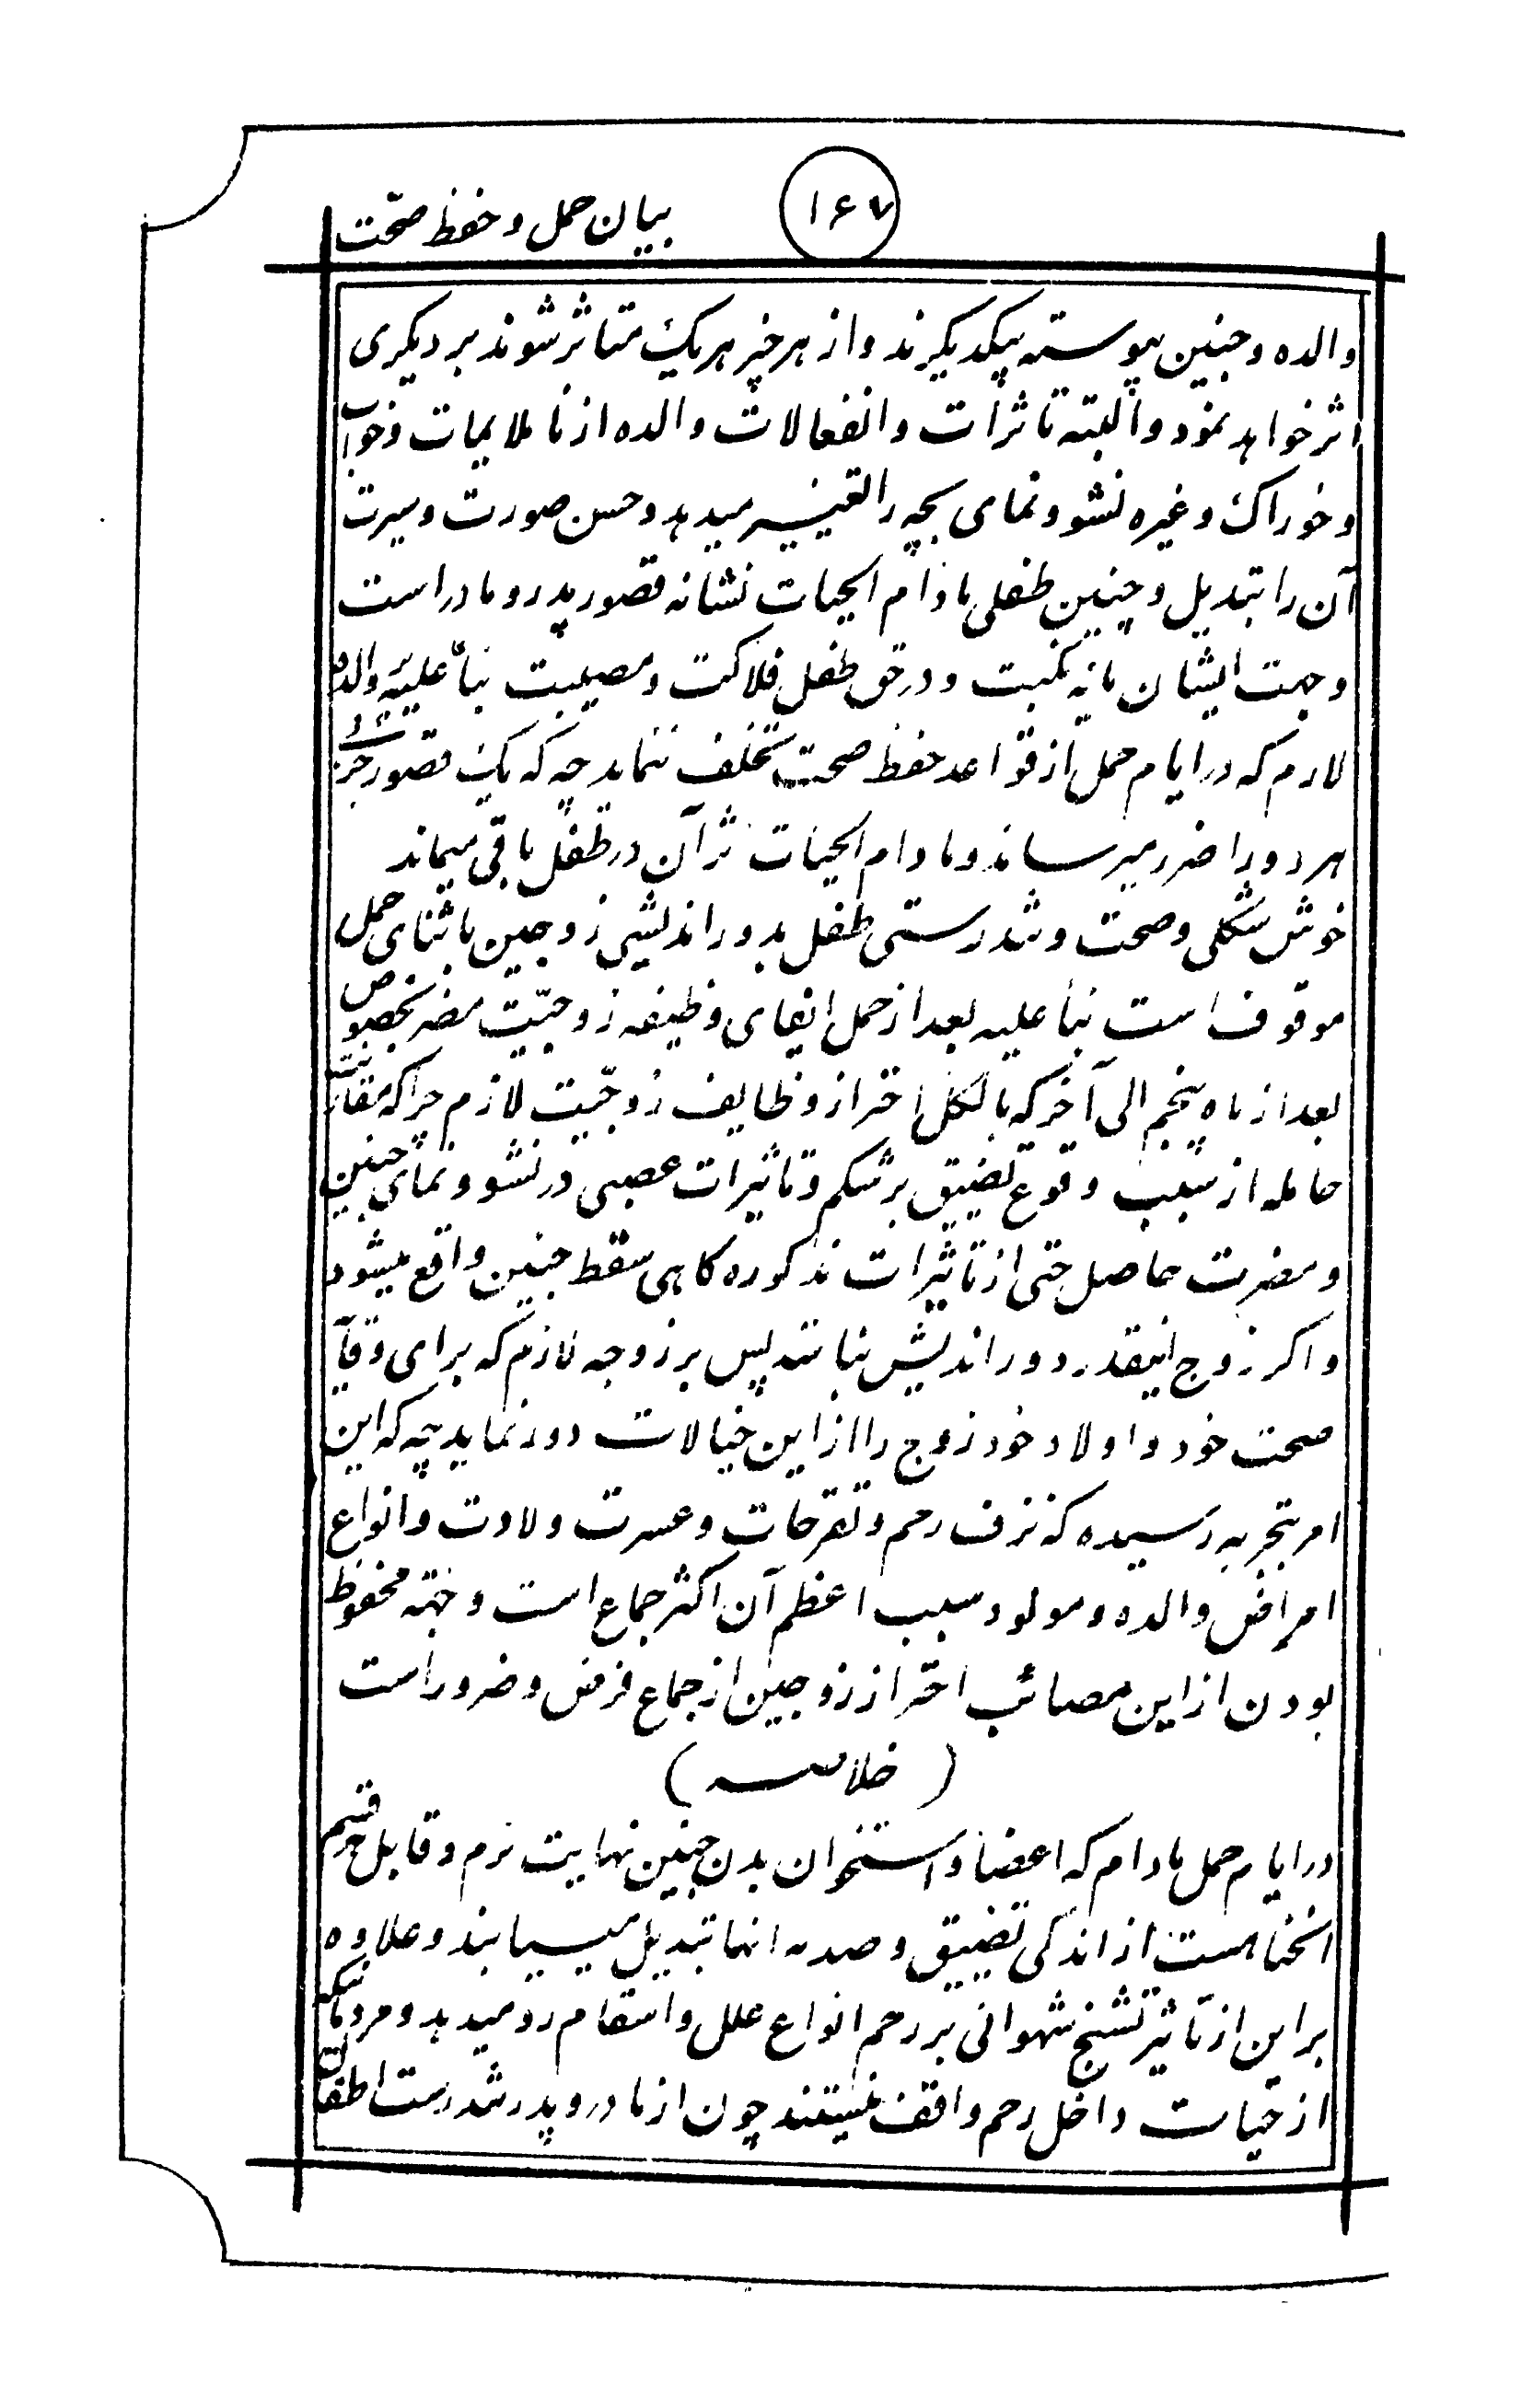 ۱۶۷
بیان حمل و حفظ صحّت
والده و جنین پیوسته بیکدیکرند و از هر چیز هریک متاثر شوند بر دیکری
اثر خواهد نمود و البته تاثرات و انفعالات والده از ناملایمات و خواب
و خوراک و غیره نشو و نمای بچه را تغییر میدهد و حسن صورت و سیرت
آن را تبدیل و چنین طفلی مادام الحیات نشانه قصور پدر و مادر است
و جهت ایشان مایه نکبت و در حق طفل فلاکت و مصیبت بنأ علیه والده
لازم که در ایام حمل از قواعد حفظ صحت تخلف ننماید چه که یک قصور جزئی
هر دو را ضرر میرساند و مادام الحیات اثر آن در طفل باقی میماند
خوش شکلی و صحت و تندرستی طفل بدور اندیشی زوجین باثنای حمل
موقوف است بنأ علیه بعد از حمل ایفای وظیفه زوجیّت مضر بخصوص
بعد از ماه پنجم الی آخر که بالکل احتراز وظایف زوجیّت لازم چرا که مقاربت
حامله از سبب وقوع تضییق بر شکم و تاثیرات عصبی در نشو و نمای جنین
و مضرت حاصل حتی از تاثیرات مذکوره کاهی سقط جنین واقع میشود
و اکر زوج اینقدر دور اندیش نباشد پس بر زوجه لازم که برای وقآیه
صحت خود و اولاد خود زوج را از این خیالات دور نماید چه که این
امر بتجربه رسیده که نزف رحم و تقرحات و عسرت ولادت و انواع
امراض والده و مولود سبب اعظم آن اکثر جماع است و جهته محفوظ
بودن از این مصائب احتراز زوجین از جماع فرض و ضرور است
( خلاصه )
در ایام حمل مادام که اعضا و استخوان بدن جنین نهایت نرم و قابل هر قسم
انحنا هست از اندکی تضییق و صدمه انها تبدیل میبیابند و علاوه
بر این از تاثیر تشنج شهوانی بر رحم انواع علل و اسقام رو میدهد و مردمانیکه
از حیات داخل رحم واقف نیستند چون از مادر و پدر تندرست اطفال